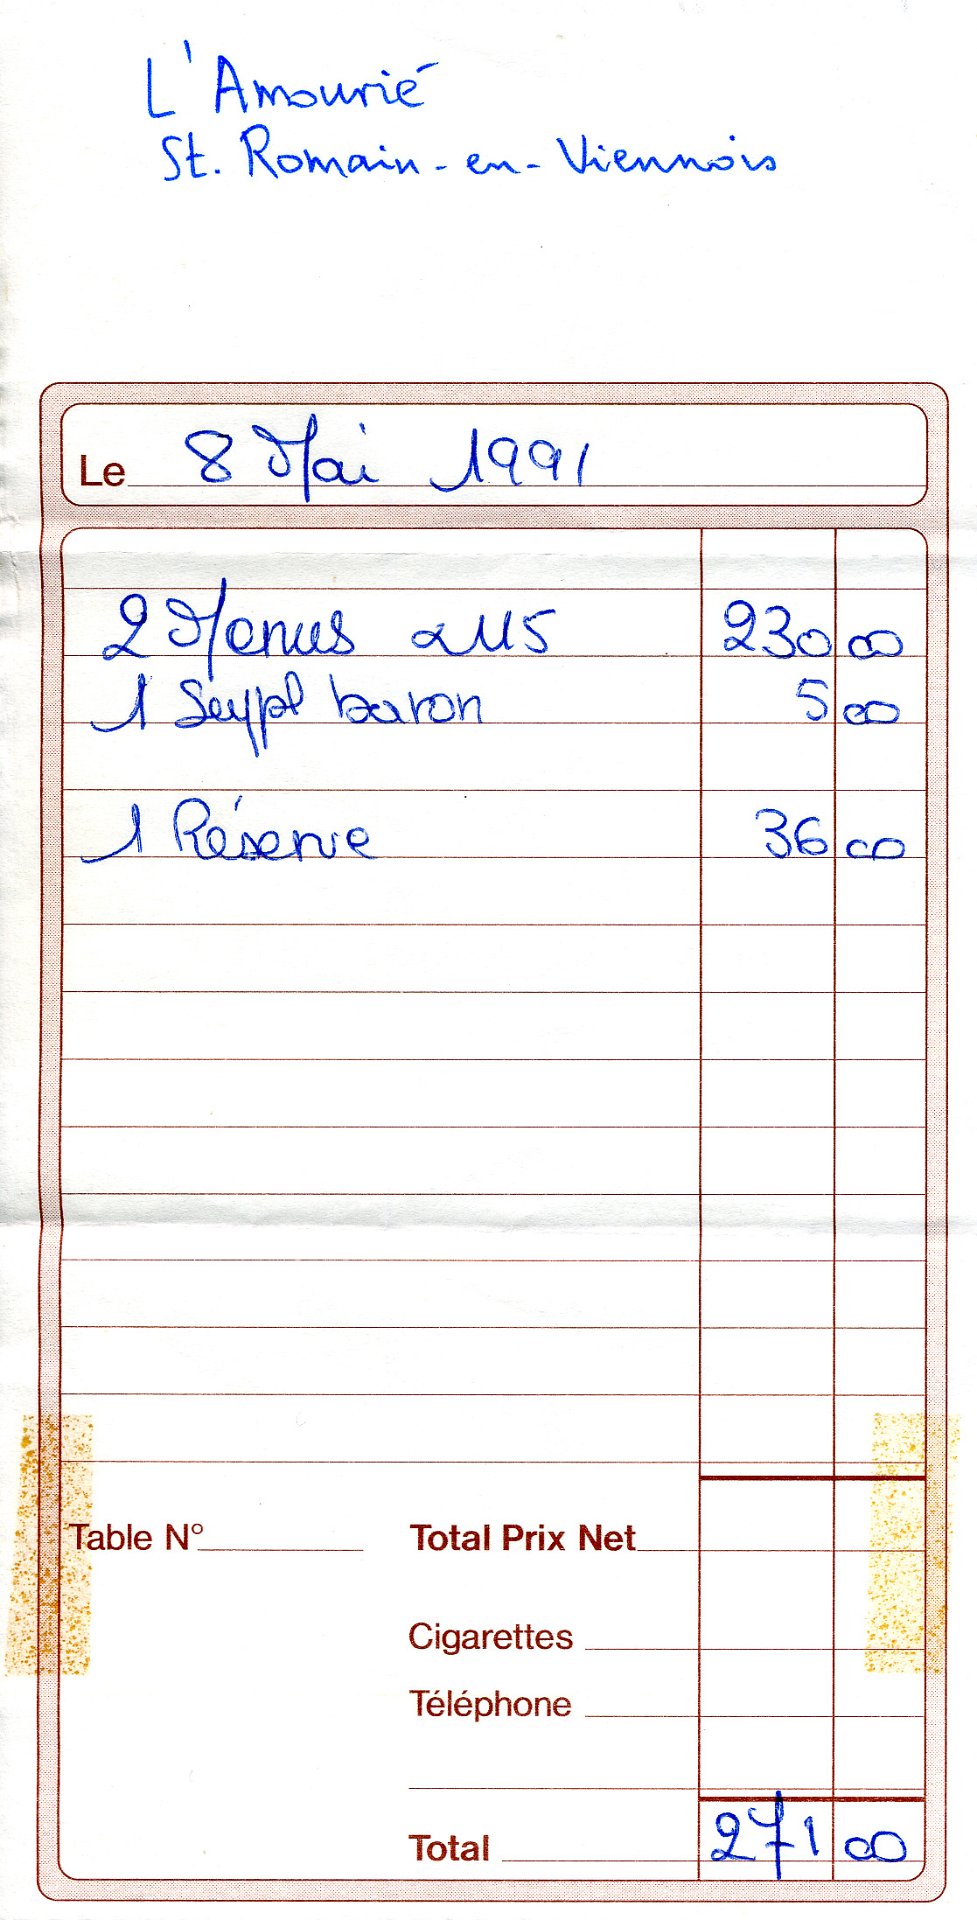 L'Amourié
St. Romain-en-Viennois
Le 8 Mai 1991
2 Menus à 115 230 00
1 Suppl baron 5 00
1 Réserve 36 00
Table N°
Total Prix Net
Cigarettes
Téléphone
Total 271 00